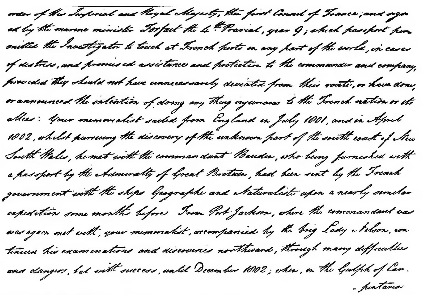 order of His Imperial and Royal Majesty, the first Consul of France; and sign-
ed by the marine minister Forfait the 4th Prarial, year 9; which passport per-
mitted the Investigator to touch at French ports in any part of the world, in cases
of distress, and promised assistance and protection to the commander and company,
provided they should not have unnecessarily deviated from their route, or have done,
or announced the intention of doing any thing injurious to the French nation or its
allies: Your memorialist sailed from England in July 1801, and in April
1802, whilst pursuing the discovery of the unknown part of the south coast of New
South Wales, he met with the commandant Baudin, who being furnished with
a passport by the Admiralty of Great Britain, had been sent by the French
government with the ships Geographe and Naturaliste upon a nearly similar
expedition some months before. From Port Jackson, where the commandant was
was again met with, your memorialist, accompanied by the brig Lady Nelson, con-
tinued his examinations and discoveries northward, through many difficulties
and dangers, but with success, until December 1802; when, in the Gulph of Car-
-pentaria